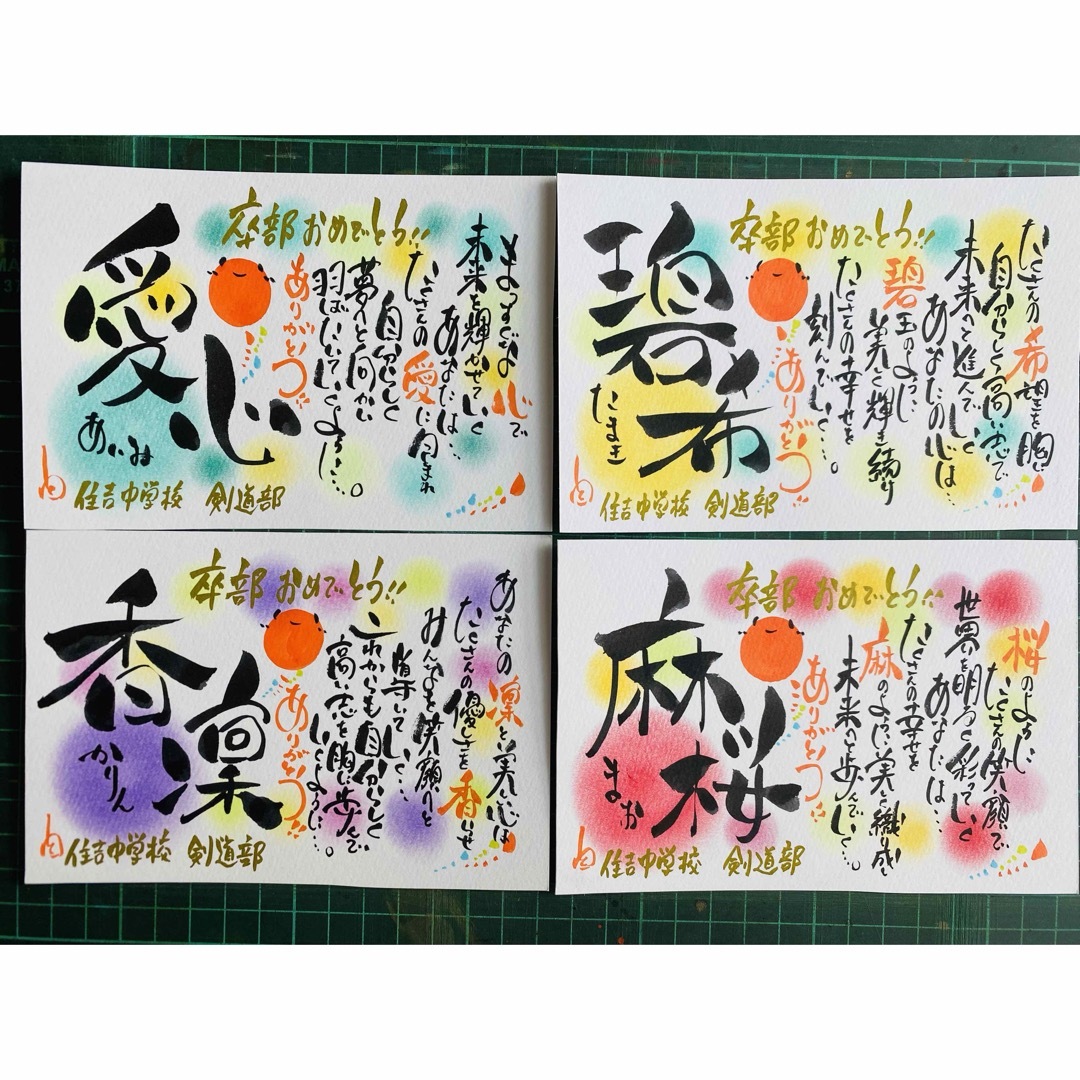 卒部おめでとう!!
愛心
あいみ
ありがとう!!
まっすぐな心で
未来を輝かせていく
あなたは…
たくさんの愛に包まれ
自分らしく
夢へと向かい
羽ばたいていくよう…。
住吉中学校 剣道部
卒部おめでとう!!
碧希
たまき
ありがとう!!
たくさんの希望を胸に
自分らしく高い志で
未来へと進んでいく
あなたの心は…
碧玉のように
美しく輝き続け
たくさんの幸せを
刻んでいく…。
住吉中学校 剣道部
卒部おめでとう!!
香凜
かりん
ありがとう!!
あなたの凜と美しい心は
たくさんの優しさを香らせ
みんなを笑顔へと
導いていく…
これからも自分らしく
高い志を胸に歩んで
いくように…。
住吉中学校 剣道部
卒部おめでとう!!
麻桜
まお
ありがとう!!
桜のように
たくさんの笑顔で
世界を明るく彩っていく
あなたは…
たくさんの幸せを
麻のように美しく織り成し
未来へと歩んでいく…。
住吉中学校 剣道部